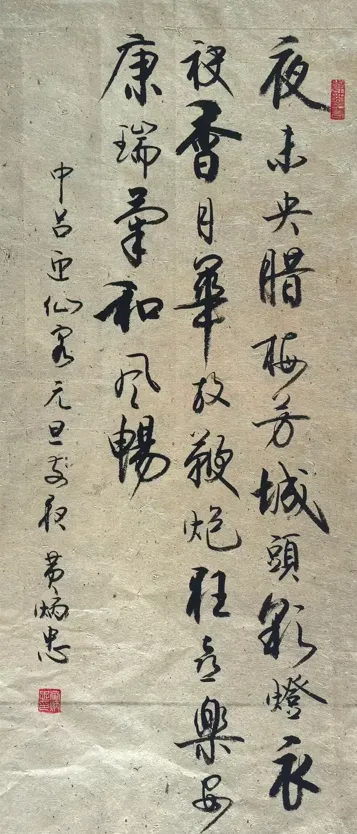 夜未央腊梅芳城頭彩燈衣
袂香月華放鞭炮狂喜樂安
康瑞氣和风暢
中吕迎仙客元旦前夜 黄炳忠